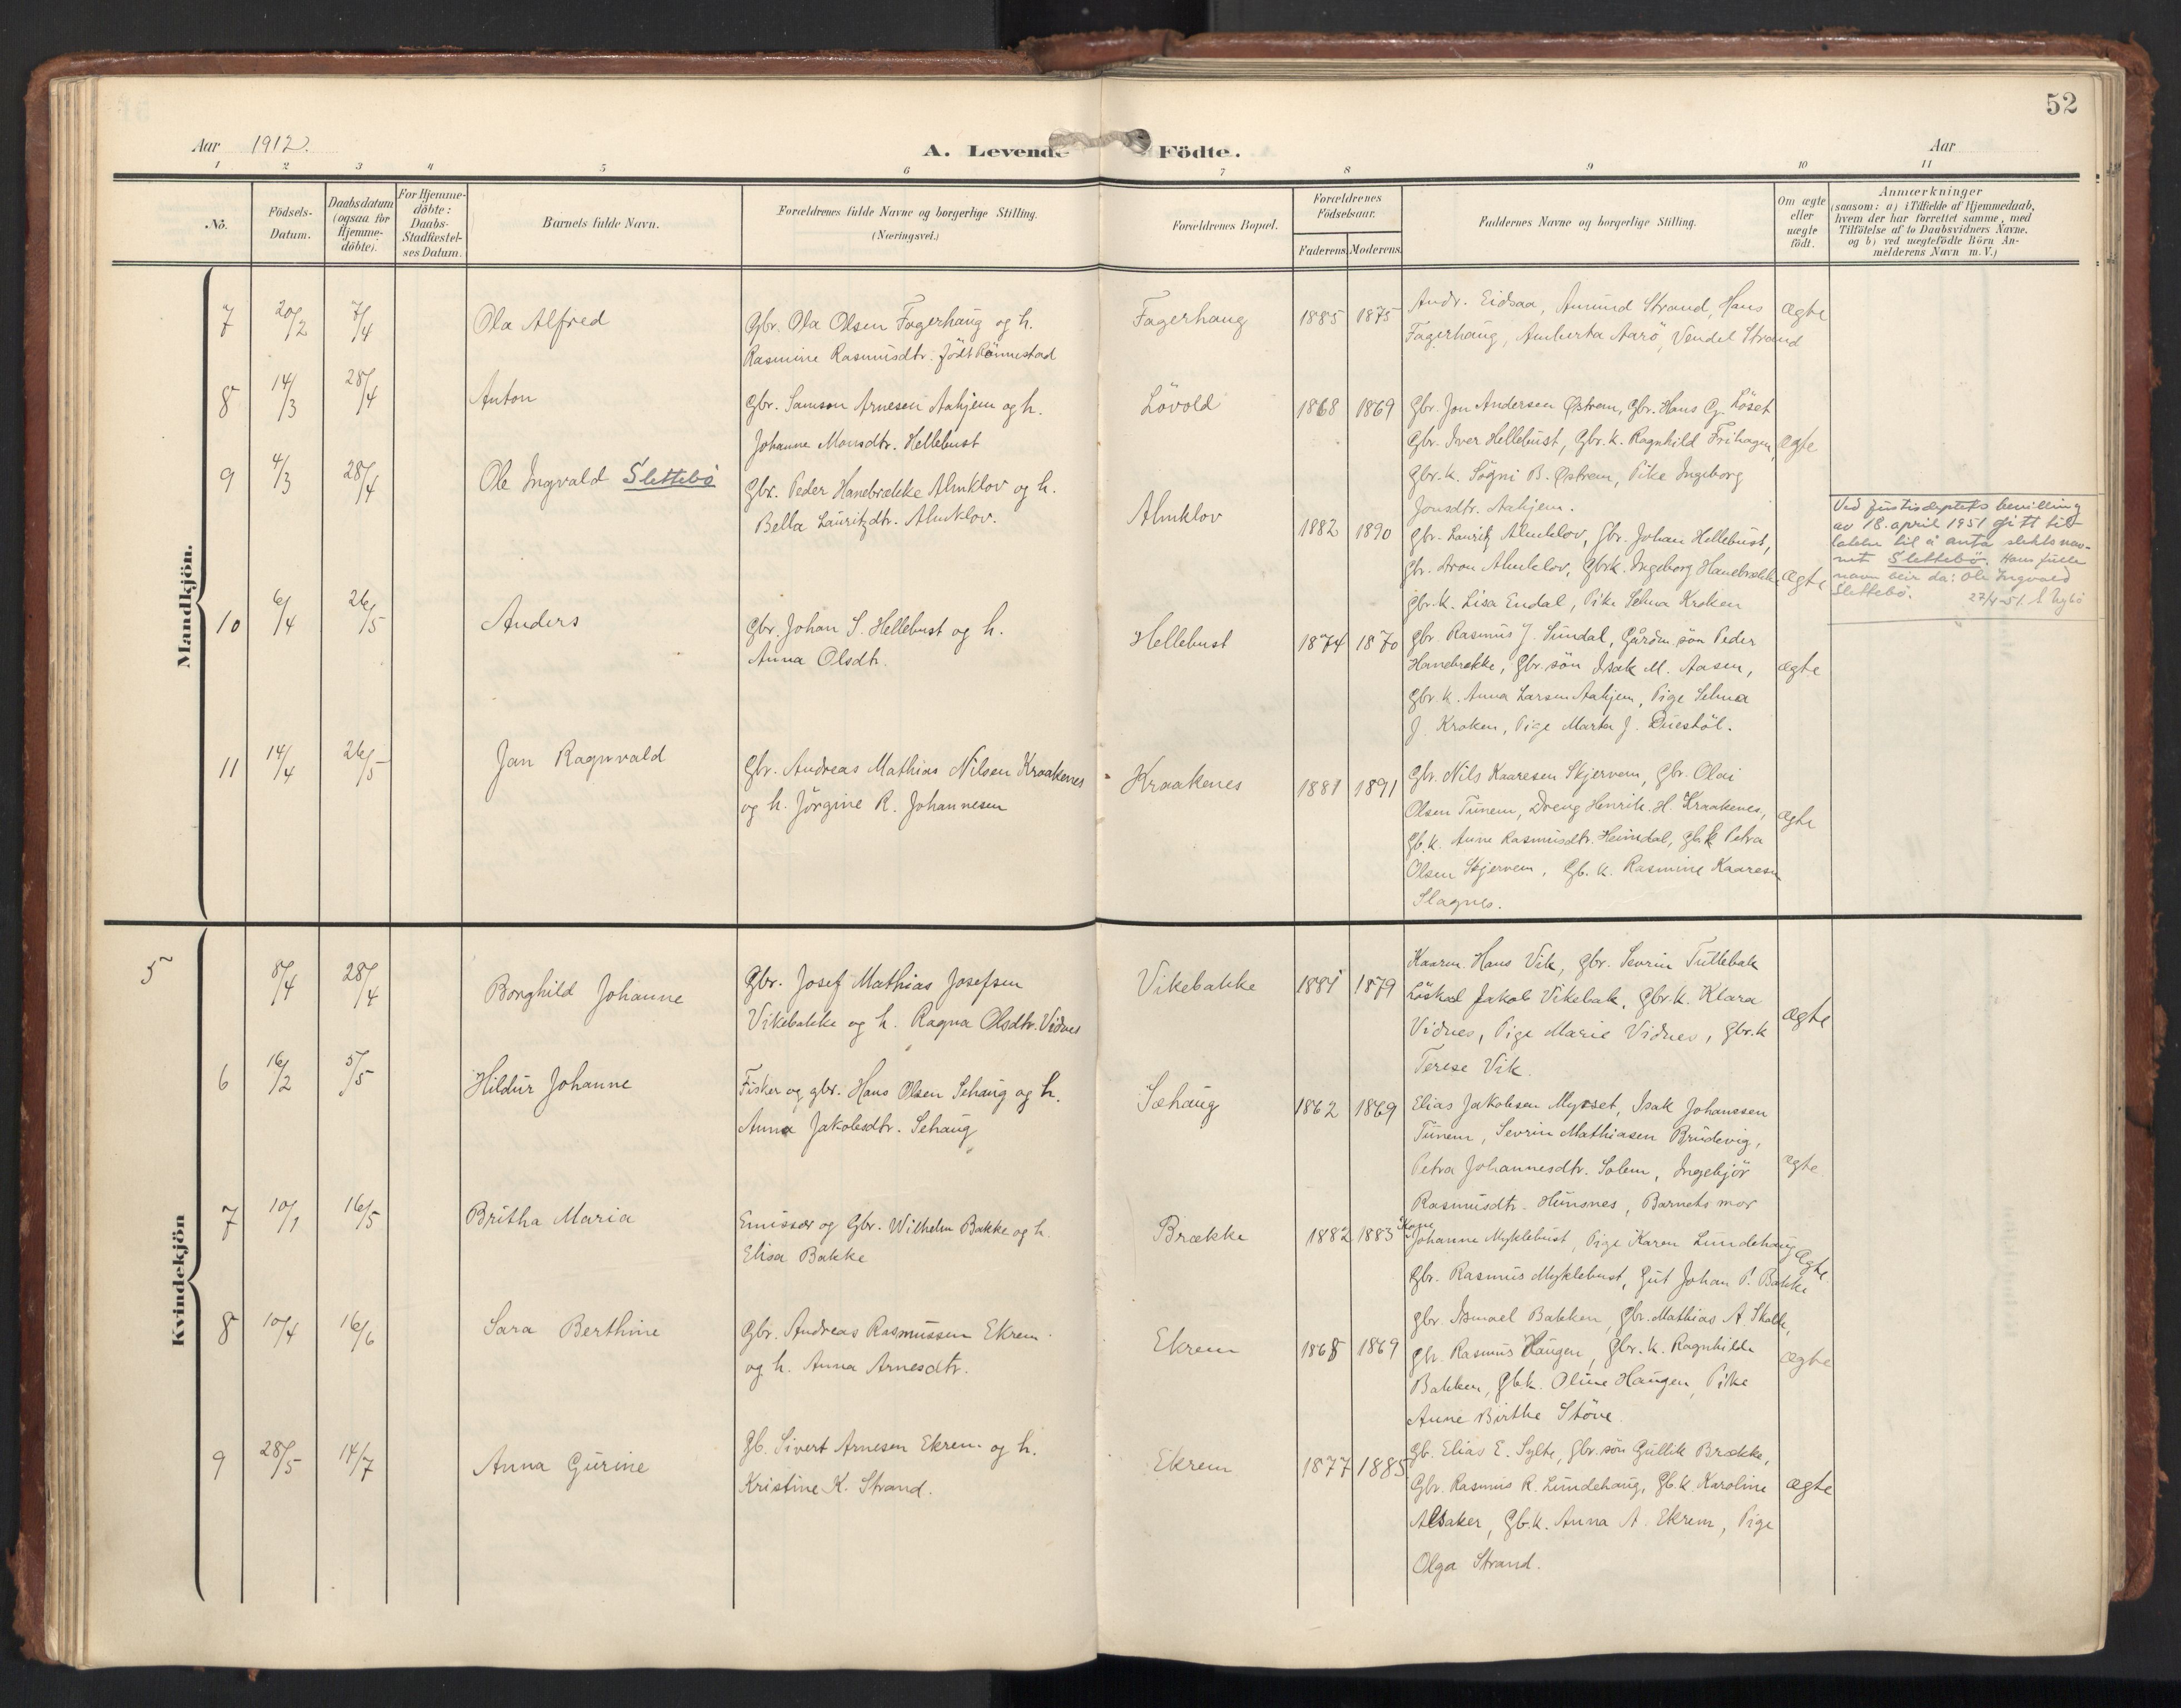 52
Aar 1912.
A. Levende Födte.
Aar
1 2 3 4 5 6 7 8 9 10 11
No.
Födsels-Datum.
Daabsdatum (ogsaa for Hjemme-döbte).
For Hjemme-döbte: Daabs-Stadfæstel-ses Datum.
Barnets fulde Navn.
Forældrenes fulde Navne og borgerlige Stilling.
(Næringsvei.)
Forældrenes Bopæl.
Forældrenes Födselsaar.
Faderens. Moderens.
Faddernes Navne og borgerlige Stilling.
Om ægte eller uægte födt.
Anmærkninger
(saasom: a) i Tilfælde af Hjemmedaab,
hvem der har forrettet samme, med
Tilföielse af to Daabsvidners Navne.
og b) ved uægtefödte Börn An-
melderens Navn m. V.)
Mandkjön.
7 20/2 7/4 Ola Alfred
Gbr. Ola Olsen Fagerhaug og h.
Rasmine Rasmusdtr. født Rönnestad
Fagerhaug 1885 1875
Andr. Eidsaa, Amund Strand, Hans
Fagerhaug, Amberta Aarö, Vendel Strand
ægte
8 14/3 28/4 Anton
Gbr. Samson Arnesen Aahjem og h.
Johanne Monsdtr. Hellebust
Lövold 1868 1869
Gbr. Jon Andersen Østrem, Gbr. Hans G. Löset
Gbr. Iver Hellebust, Gbr. k. Ragnhild Frihagen,
Gbr. k. Sögni B. Østrem, Pike Ingeborg
Jonsdtr. Aahjem.
ægte
9 4/3 28/4 Ole Ingvald Slettebö
Gbr. Peder Hanebrekke Almklov og h.
Bella Lauritzdtr. Almklov.
Almklov 1882 1890
Gbr. Lauritz Almklov, Gbr. Johan Hellebust,
Gbr. Aron Almklov, Gbrk. Ingeborg Hanebrekke
Gbr. k. Lisa Endal, Pike Selma Kroken
ægte
Ved Justisdeptets bevilling
av 18. april 1951 gitt til-
latelse til å anta slektsnav-
net Slettebö. Hans fulle
navn blir da: Ole Ingvald
Slettebö. 27/4-51.
10 6/4 26/5 Anders
Gbr. Johan S. Hellebust og h.
Anna Olsdtr.
Hellebust 1874 1870
Gbr. Rasmus J. Sundal, Gårdm. søn Peder
Hanebrekke, Gbr. søn Isak M. Aasen,
Gbr. k. Anna Larsen Aahjem, Pige Selma
J. Kroken, Pige Marta J. Duestöl.
ægte
11 14/4 26/5 Jan Ragnvald
Gbr. Andreas Mathias Nilsen Kraakenes
og h. Jörgine R. Johannesen
Kraakenes 1881 1891
Gbr. Nils Kaaresen Skjervem, Gbr. Olai
Olsen Tunem, Dreng Henrik. H. Kraakenes,
Gb. k. Anne Rasmusdtr. Heimdal, Gb. k Petra
Olsen Skjervem, Gb. k. Rasmine Kaaresen
Slagnes.
ægte
Kvindekjön
5 8/4 28/4 Borghild Johanne
Gbr. Josef Mathias Josefsen
Vikebakke og h. Ragna Olsdtr. Vidnes
Vikebakke 1881 1879
Kaarm. Hans Vik, Gbr. Sevrin Tuttebak
Löskal Jakob Vikebak, Gbr. k. Klara
Vidnes, Pige Marie Vidnes, Gbr. k
Terese Vik.
ægte
6 16/2 5/5 Hildur Johanne
Fisker og gbr. Hans Olsen Sehaug og h.
Anna Jakobsdtr. Sehaug
Sæhaug 1862 1869
Elias Jakobsen Myrset, Isak Johanssen
Tunem, Sevrin Mathiasen Brudevig,
Petra Johannesdtr. Solem, Ingebjör
Rasmusdtr. Hunsnes, Barnets mor
ægte
7 10/1 16/5 Britha Maria
Emissær og Gbr. Wilhelm Bakke og h.
Elisa Bakke
Brække 1882 1883
Kone
Johanne Myklebust, Pige Karen Lundehaug
Gbr. Rasmus Myklebust, Gut Johan P. Bakke
ægte
8 10/4 16/6 Sara Berthine
Gbr. Andreas Rasmussen Ekrem
og h. Anna Arnesdtr.
Ekrem 1868 1869
gbr. Ismael Bakken, Gbr. Mathias A. Skalle,
Gbr. Rasmus Haugen, Gbr. k. Ragnhilda
Bakken, Gbk. Oline Haugen, Pike
Anne Birthe Støve
ægte
9 28/5 14/7 Anna Gurine
Gb. Sivert Arnesen Ekrem og h.
Kristine K. Strand.
Ekrem 1877 1885
Gb. Elias E. Sylte, Gbr. sön Gullik Brække,
Gbr. Rasmus R. Lundehaug, Gb. k. Karoline
Alsaker, Gb. k. Anna A. Ekrem, Pige
Olga Strand.
ægte